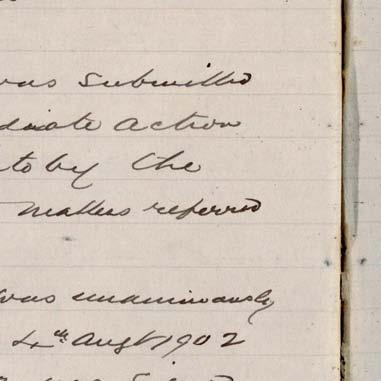 was submitted
diate action
to by the
matters referred
was unanimously
4th Augt 1902